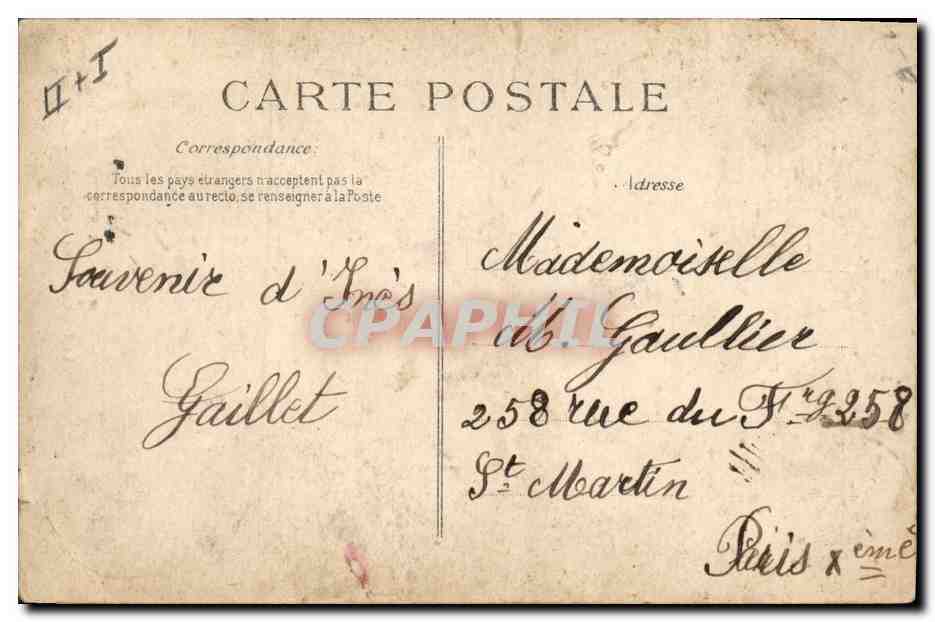 II + I
CARTE POSTALE
Correspondance:
Tous les pays étrangers n'acceptent pas la
correspondance au recto, se renseigner à la Poste
Adresse
Souvenir d'Inès
Gaillet
Mademoiselle
M Gaullier
258 rue du Frg 258
St Martin
Paris xème
CPAPHIL